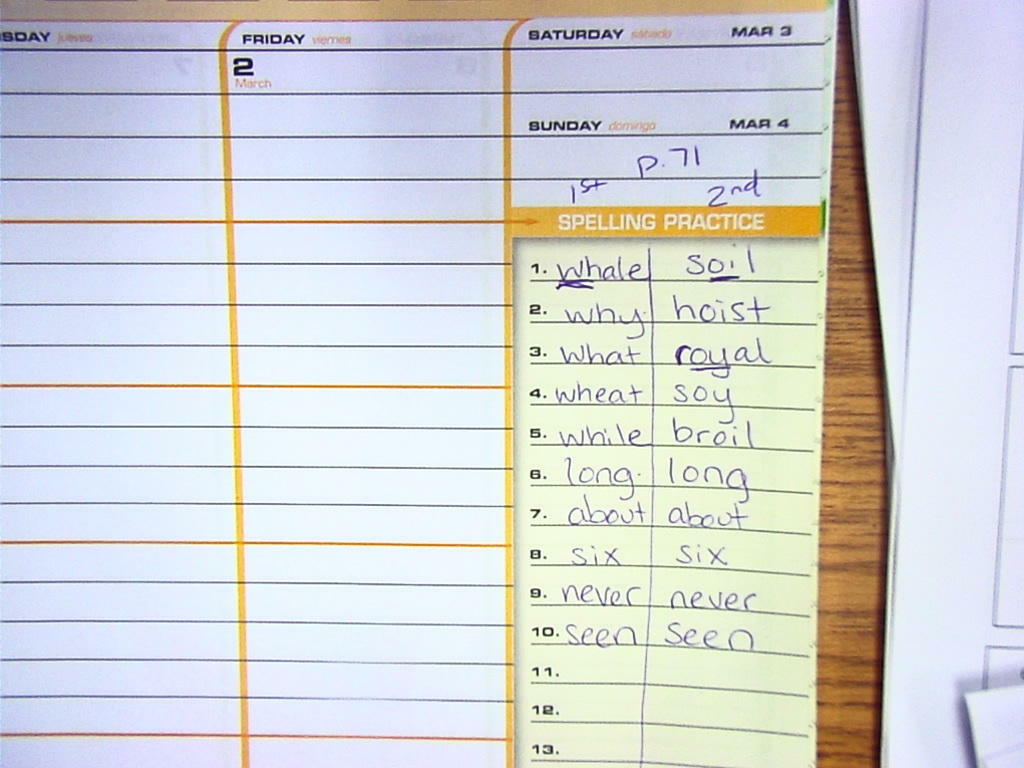 SDAY jueves
FRIDAY viernes
2
March
SATURDAY sábado MAR 3
SUNDAY domingo MAR 4
p. 71
1st 2nd
SPELLING PRACTICE
1. whale soil
2. why hoist
3. what royal
4. wheat soy
5. while broil
6. long long
7. about about
8. six six
9. never never
10. seen seen
11.
12.
13.